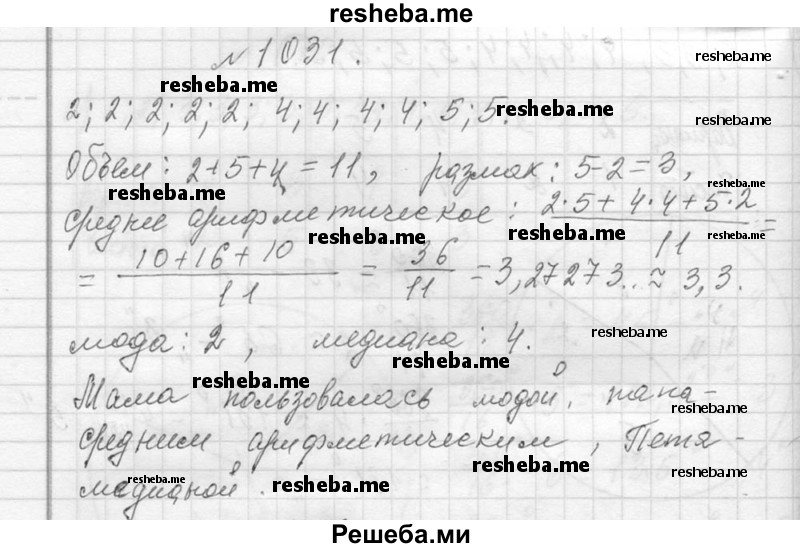 resheba.me
№1031.
resheba.me
resheba.me
2; 2; 2; 2; 2; 4; 4; 4; 4; 5; 5.
resheba.me
resheba.me
Объём: 2+5+4=11, размах: 5-2=3,
resheba.me
resheba.me
среднее арифметическое: 2·5+4·4+5·2 / 11 =
resheba.me
resheba.me
resheba.me
= 10+16+10 / 11 = 36 / 11 = 3,27273.. ≈ 3,3.
resheba.me
мода: 2, медиана: 4.
resheba.me
resheba.me
Мама пользовалась модой, папа-
resheba.me
средним арифметическим, Петя -
resheba.me
resheba.me
resheba.me
медианой.
Решеба.ми